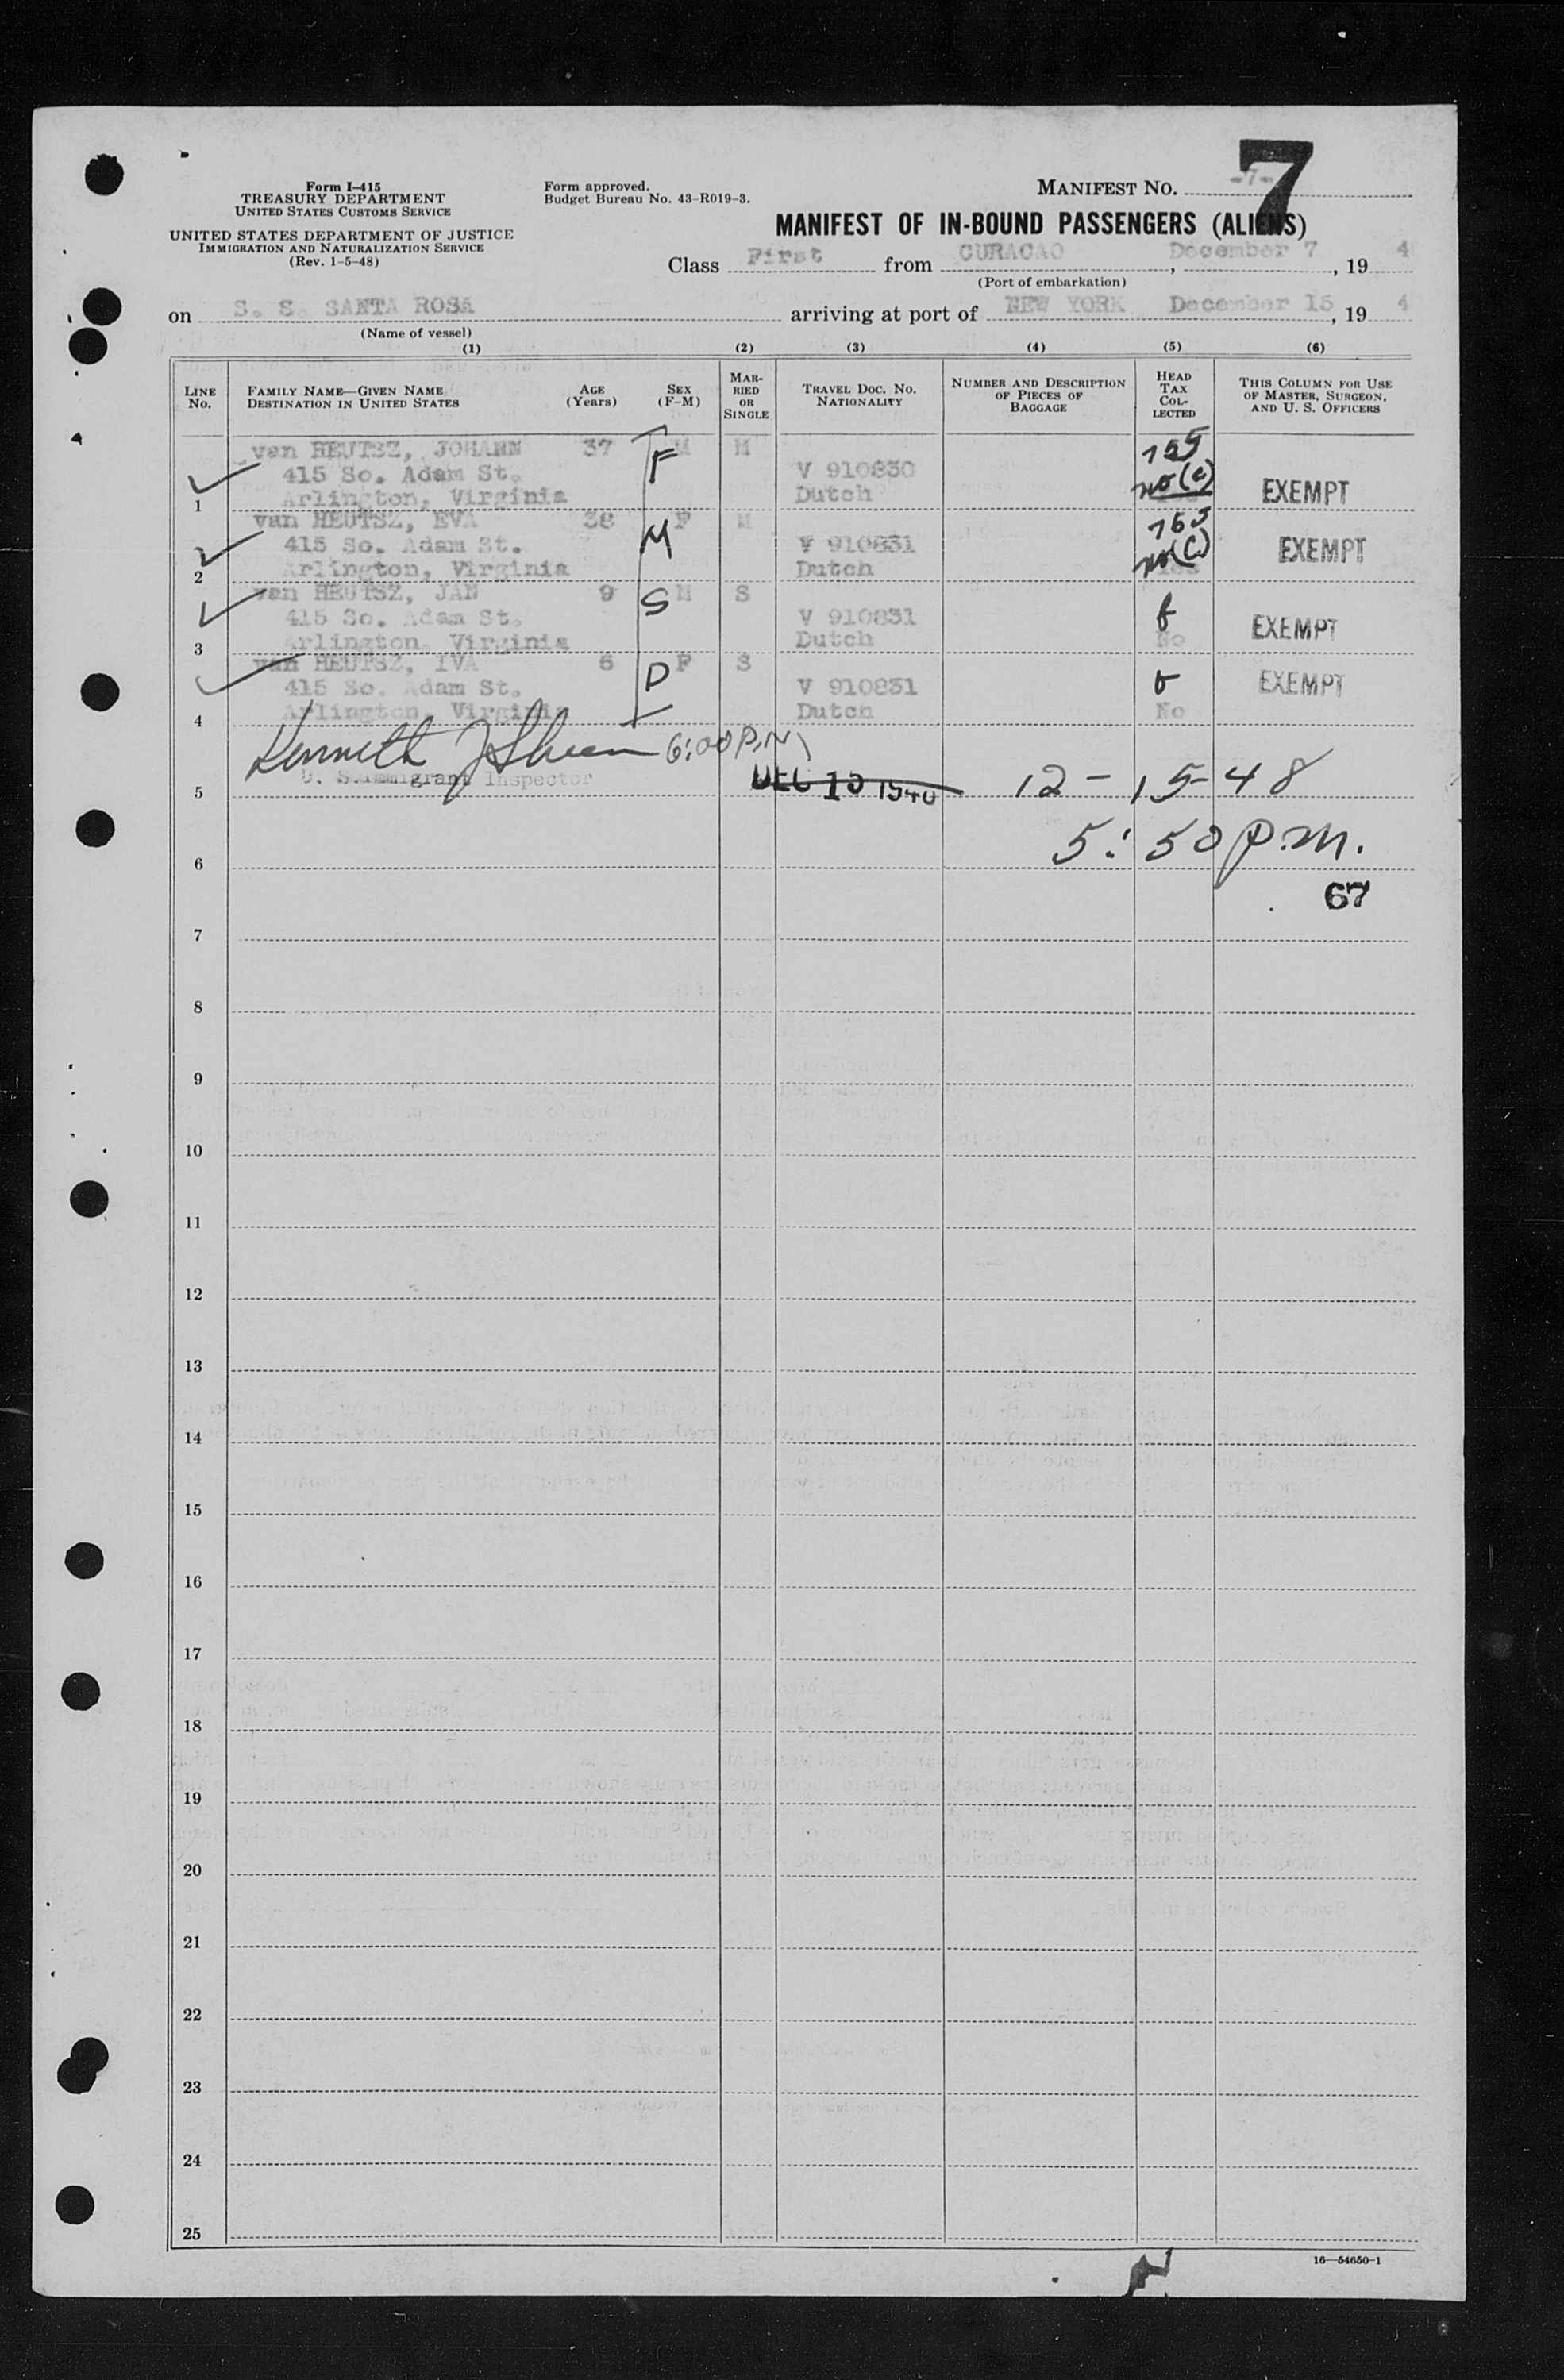 Form I-415
TREASURY DEPARTMENT
UNITED STATES CUSTOMS SERVICE
UNITED STATES DEPARTMENT OF JUSTICE
IMMIGRATION AND NATURALIZATION SERVICE
(Rev. 1-5-48)
Form approved.
Budget Bureau No. 43-R019-3.
MANIFEST NO. -7-
7
MANIFEST OF IN-BOUND PASSENGERS (ALIENS)
Class First from CURACAO, December 7, 19 4
(Port of embarkation)
on S. S. SANTA ROSA arriving at port of NEW YORK December 15, 19 4
(Name of vessel)
(1) (2) (3) (4) (5) (6)
LINE No. FAMILY NAME—GIVEN NAME DESTINATION IN UNITED STATES AGE (Years) SEX (F-M) MARRIED OR SINGLE TRAVEL DOC. NO. NATIONALITY NUMBER AND DESCRIPTION OF PIECES OF BAGGAGE HEAD TAX COLLECTED THIS COLUMN FOR USE OF MASTER, SURGEON, AND U. S. OFFICERS
van HEUTSZ, JOHANN 37 F M M
415 So. Adam St. V 910830 no(c)
1 Arlington, Virginia Dutch EXEMPT
van HEUTSZ, EVA 38 F M
415 So. Adam St. M V 910831 no(c) EXEMPT
2 Arlington, Virginia Dutch Yes
van HEUTSZ, JAN 9 S M S
415 So. Adam St. V 910831 EXEMPT
3 Arlington, Virginia Dutch No
van HEUTSZ, IVA 6 F S
415 So. Adam St. D V 910831 EXEMPT
4 Arlington, Virginia Dutch No
Kenneth J 6:00 P.M
U. S. Immigrant Inspector
5 DEC 12-15-48
6 5:50 P.M.
67
7
8
9
10
11
12
13
14
15
16
17
18
19
20
21
22
23
24
25
16—54650-1